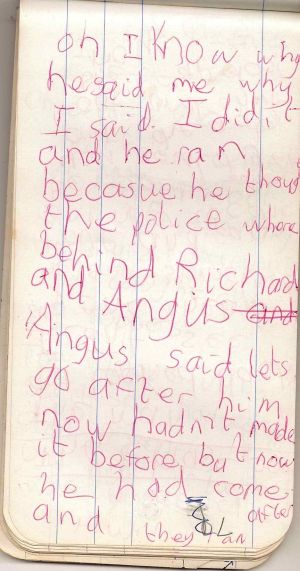 oh I know why
he said me why
I said I did it
and he ran
becasue he thoug
the police where
behind Richard
and Angus and
Angus said lets
go after him
now hadn't made
it before but now
he had come
and they ran after